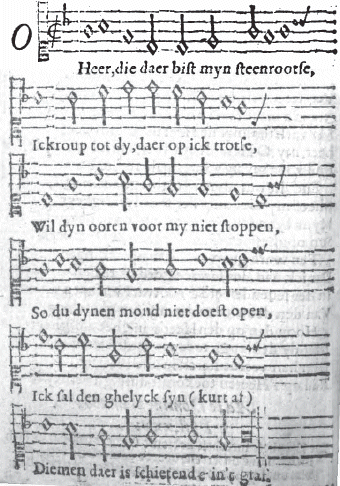 O
Heer, die daer bist myn steenrootse,
Ick roup tot dy, daer op ick trotse,
Wil dyn ooren voor my niet stoppen,
So du dynen mond niet doest open,
Ick sal den ghelyck syn ( kurt af)
Diemen daer is schietende in't graf.